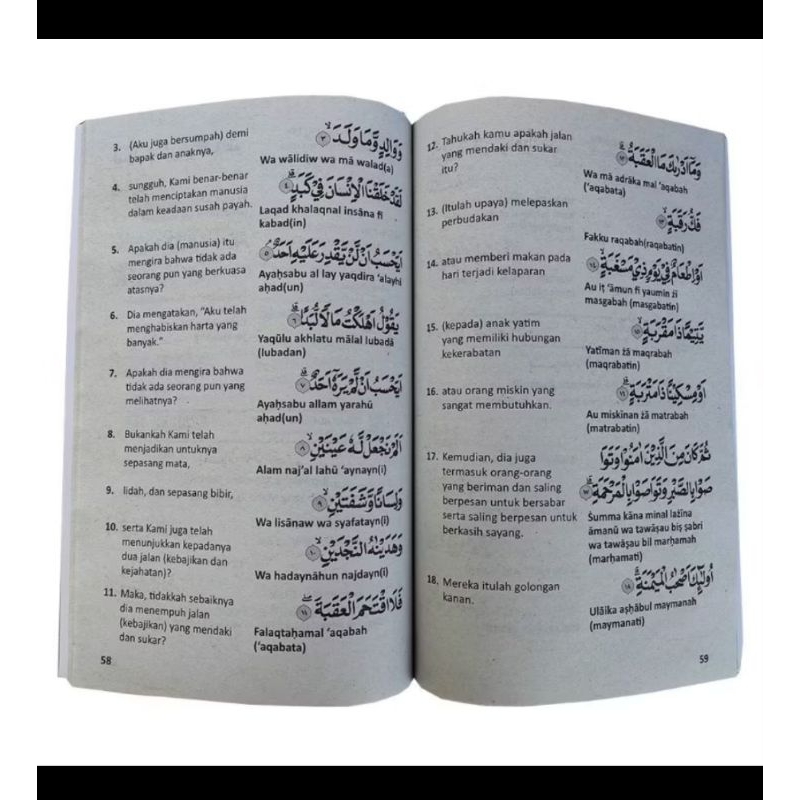 3. (Aku juga bersumpah) demi
bapak dan anaknya,
وَوَالِدٍ وَّمَا وَلَدَۙ ٣
Wa wālidiw wa mā walad(a)
4. sungguh, Kami benar-benar
telah menciptakan manusia
dalam keadaan susah payah.
لَقَدْ خَلَقْنَا الْاِنْسَانَ فِيْ كَبَدٍۗ ٤
Laqad khalaqnal insāna fī
kabad(in)
5. Apakah dia (manusia) itu
mengira bahwa tidak ada
seorang pun yang berkuasa
atasnya?
اَيَحْسَبُ اَنْ لَّنْ يَّقْدِرَ عَلَيْهِ اَحَدٌۘ ٥
Ayaḥsabu al lay yaqdira ‘alayhi
aḥad(un)
6. Dia mengatakan, “Aku telah
menghabiskan harta yang
banyak.”
يَقُوْلُ اَهْلَكْتُ مَالًا لُّبَدًاۗ ٦
Yaqūlu akhlatu mālal lubadā
(lubadan)
7. Apakah dia mengira bahwa
tidak ada seorang pun yang
melihatnya?
اَيَحْسَبُ اَنْ لَّمْ يَرَهٗٓ اَحَدٌۗ ٧
Ayaḥsabu allam yarahū
aḥad(un)
8. Bukankah Kami telah
menjadikan untuknya
sepasang mata,
اَلَمْ نَجْعَلْ لَّهٗ عَيْنَيْنِۙ ٨
Alam naj’al lahū ‘aynayn(i)
9. lidah, dan sepasang bibir,
وَلِسَانًا وَّشَفَتَيْنِۙ ٩
Wa lisānaw wa syafatayn(i)
10. serta Kami juga telah
menunjukkan kepadanya
dua jalan (kebajikan dan
kejahatan)?
وَهَدَيْنٰهُ النَّجْدَيْنِۙ ١٠
Wa hadaynāhun najdayn(i)
11. Maka, tidakkah sebaiknya
dia menempuh jalan
(kebajikan) yang mendaki
dan sukar?
فَلَا اقْتَحَمَ الْعَقَبَةَۖ ١١
Falaqtaḥamal ‘aqabah
(‘aqabata)
58
12. Tahukah kamu apakah jalan
yang mendaki dan sukar
itu?
وَمَآ اَدْرٰىكَ مَا الْعَقَبَةُۗ ١٢
Wa mā adrāka mal ‘aqabah
(‘aqabata)
13. (Itulah upaya) melepaskan
perbudakan
فَكُّ رَقَبَةٍۙ ١٣
Fakku raqabah(raqabatin)
14. atau memberi makan pada
hari terjadi kelaparan
اَوْ اِطْعَامٌ فِيْ يَوْمٍ ذِيْ مَسْغَبَةٍۙ ١٤
Au iṭ ‘āmun fī yaumin żī
masgabah (masgabatin)
15. (kepada) anak yatim
yang memiliki hubungan
kekerabatan
يَّتِيْمًا ذَا مَقْرَبَةٍۙ ١٥
Yatīman żā maqrabah
(maqrabatin)
16. atau orang miskin yang
sangat membutuhkan.
اَوْ مِسْكِيْنًا ذَا مَتْرَبَةٍۗ ١٦
Au miskinan żā matrabah
(matrabatin)
17. Kemudian, dia juga
termasuk orang-orang
yang beriman dan saling
berpesan untuk bersabar
serta saling berpesan untuk
berkasih sayang.
ثُمَّ كَانَ مِنَ الَّذِيْنَ اٰمَنُوْا وَتَوَا
صَوْا بِالصَّبْرِ وَتَوَاصَوْا بِالْمَرْحَمَةِۗ ١٧
Ṡumma kāna minal lażīna
āmanū wa tawāṣau biṣ ṣabri
wa tawāṣau bil marḥamah
(marḥamati)
18. Mereka itulah golongan
kanan.
اُولٰۤىِٕكَ اَصْحٰبُ الْمَيْمَنَةِۗ ١٨
Ulāika aṣḥābul maymanah
(maymanati)
59